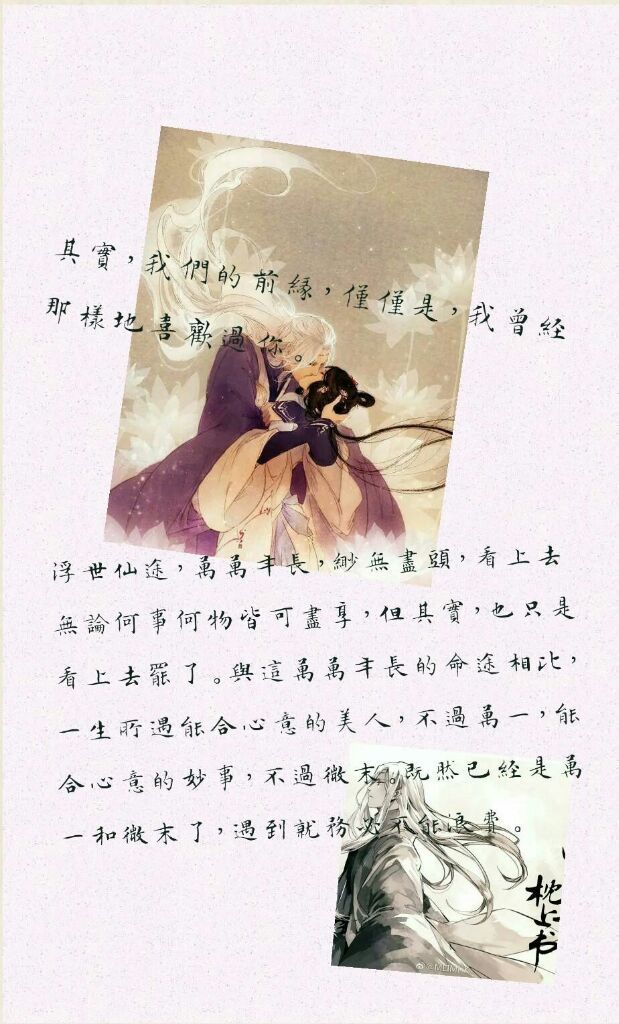 其實，我們的前緣，僅僅是，我曾經
那樣地喜歡過你。
浮世仙途，萬萬年長，緲無盡頭，看上去
無論何事何物皆可盡享，但其實，也只是
看上去罷了。與這萬萬年長的命途相比，
一生所遇能合心意的美人，不過萬一，能
合心意的妙事，不過微末。既然已經是萬
一和微末了，遇到就務必不能浪費。
枕上书